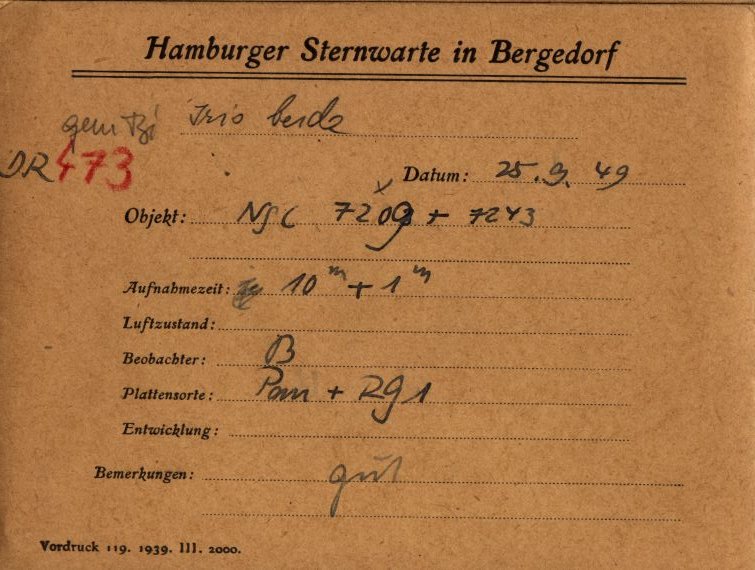 Hamburger Sternwarte in Bergedorf
Iris beide
DR 473
Datum: 25. 9. 49
Objekt: NGC 7209 + 7243
Aufnahmezeit: 10m + 1m
Luftzustand:
Beobachter: B
Plattensorte: Pan + RG1
Entwicklung:
Bemerkungen: gut
Vordruck 119. 1939. III. 2000.